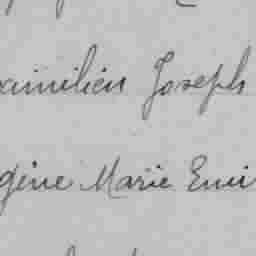 aximilien Joseph
gène Marie Emi